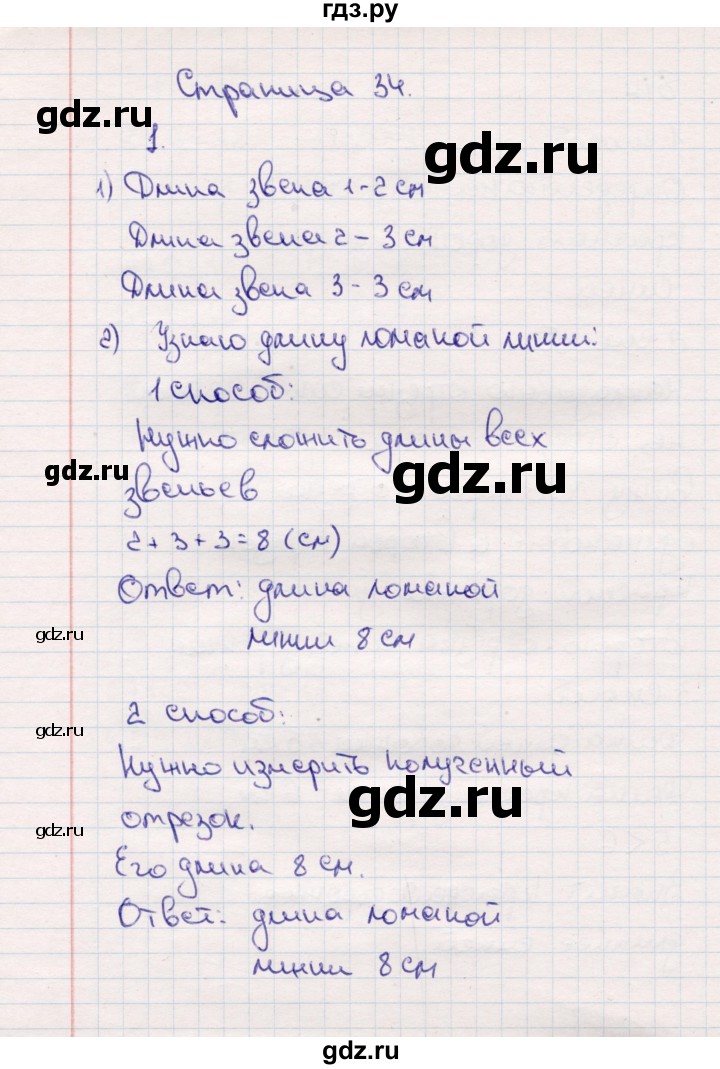 гдз.ру
Страница 34.
gdz.ru
gdz.ru
1.
1) Длина звена 1 - 2 см
Длина звена 2 - 3 см
Длина звена 3 - 3 см
2) Узнаю длину ломаной линии:
1 способ:
Нужно сложить длины всех
gdz.ru
gdz.ru
звеньев
2+3+3=8 (см)
Ответ: длина ломаной
gdz.ru
линии 8 см
2 способ:
gdz.ru
Нужно измерить полученный
gdz.ru
отрезок.
gdz.ru
Его длина 8 см.
Ответ: длина ломаной
линии 8 см
gdz.ru